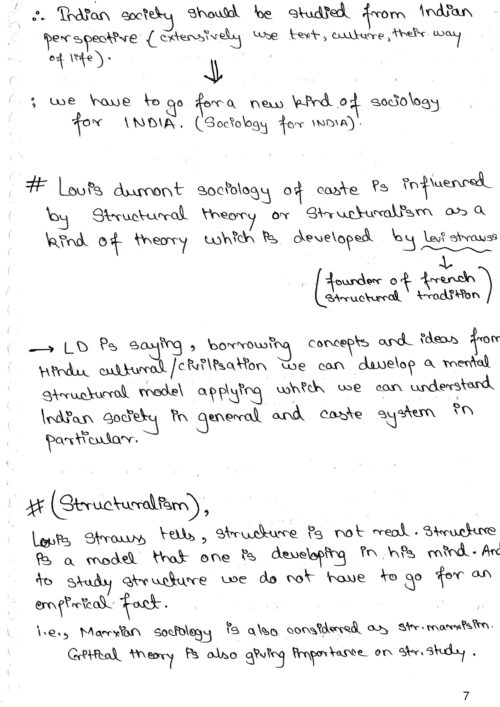 ∴ Indian society should be studied from Indian
perspective (extensively use text, culture, their way
of life).
⇓
; we have to go for a new kind of sociology
for INDIA. (Sociology for INDIA).
# Louis dumont sociology of caste is influenced
by Structural theory or Structuralism as a
kind of theory which is developed by Levi strauss
↓
(founder of french
structural tradition)
→ LD is saying, borrowing concepts and ideas from
Hindu cultural/civilisation we can develop a mental
structural model applying which we can understand
Indian society in general and caste system in
particular.
# (Structuralism),
Louis Strauss tells, structure is not real. Structure
is a model that one is developing in his mind. And
to study structure we do not have to go for an
empirical fact.
i.e., Marxian sociology is also considered as str. marxisim.
Critical theory is also giving importance on str. study.
7